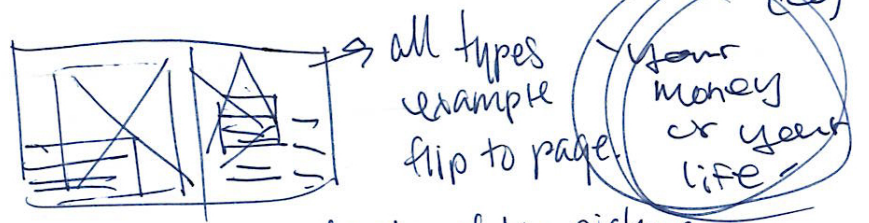 all types
example
flip to page.
your
money
or your
life -